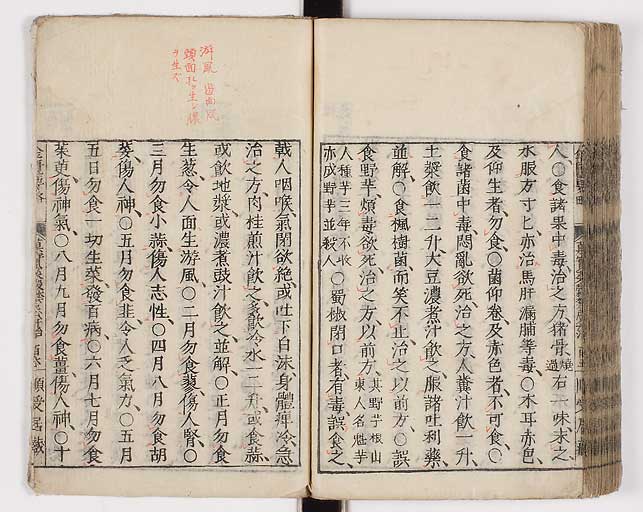 人○食諸果中毒治之方猪骨燒過右一味末之
水服方寸匕亦治馬肝漏脯等毒○木耳赤色
及仰生者勿食○菌仰卷及赤色者不可食○
食諸菌中毒悶亂欲死治之方人糞汁飲一升
土漿飲一二升大豆濃煮汁飲之服諸吐利藥
並解○食楓樹菌而笑不止治之以前方○誤
食野芋煩毒欲死治之方以前方其野芋根山東人名魁芋
人種芋三年不收亦成野芋並殺人○蜀椒閉口者有毒誤食之
戟人咽喉氣閉欲絶或吐下白沫身體痺冷急
治之方肉桂煎汁飲之多飲冷水一二升或食蒜
或飲地漿或濃煮豉汁飲之並解○正月勿食
生葱令人面生游風○二月勿食蓼傷人腎○
三月勿食小蒜傷人志性○四月八月勿食胡
荽傷人神○五月勿食韭令人乏氣力○五月
五日勿食一切生菜發百病○六月七月勿食
茱萸傷神氣○八月九月勿食薑傷人神○十
游風
頭面
ヲ生ス